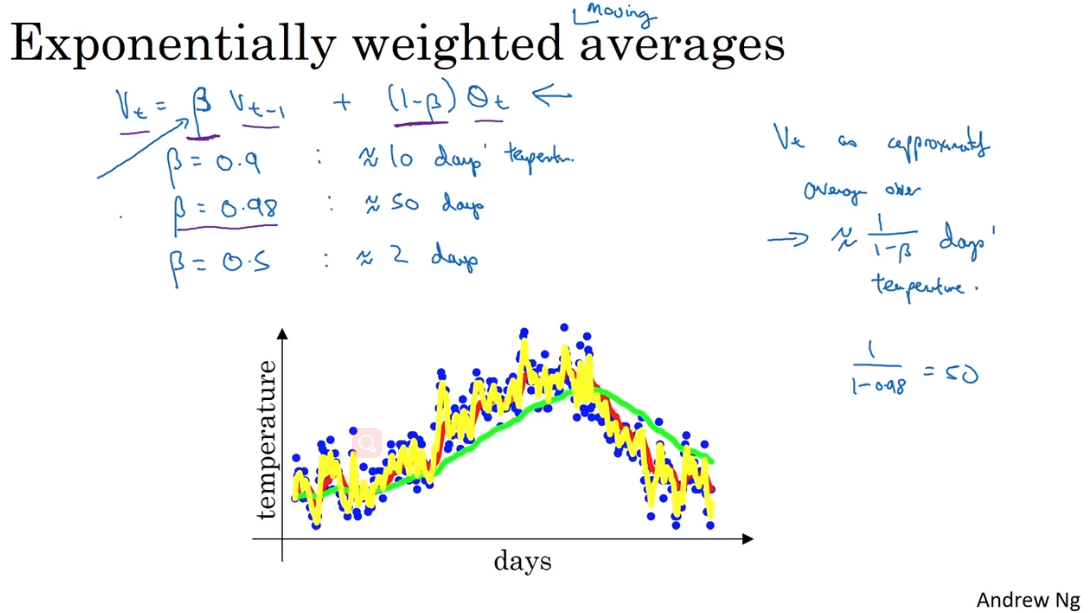 Moving
Exponentially weighted averages
Vt = β Vt-1 + (1-β) θt ←
β = 0.9 : ≈ 10 days' temperatur.
β = 0.98 : ≈ 50 days
β = 0.5 : ≈ 2 days
Vt as approximately
average over
→ ≈ 1/(1-β) days'
temperature.
1/(1-0.98) = 50
temperature
days
Andrew Ng